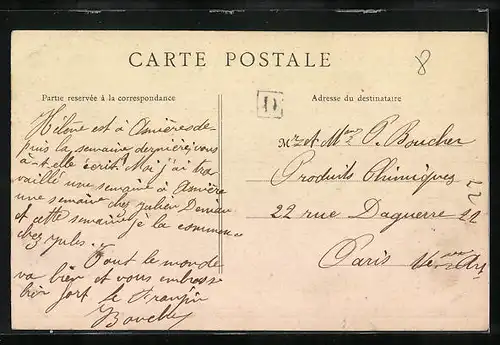 CARTE POSTALE
8
Partie reservée à la correspondance
Adresse du destinataire
D
Hélène est à Asnières de-
puis la semaine dernière, vous
à-t-elle écrit. Moi j'ai tra
vaillé une semaine à Asnière
une semaine chez Julien
et cette semaine je la commen
chez Jules.
Tout le monde
va bien et vous embrasse
bien fort le
Mr et Mme P. Boucher
Produits Chimiques
22 rue Daguerre 22
Paris